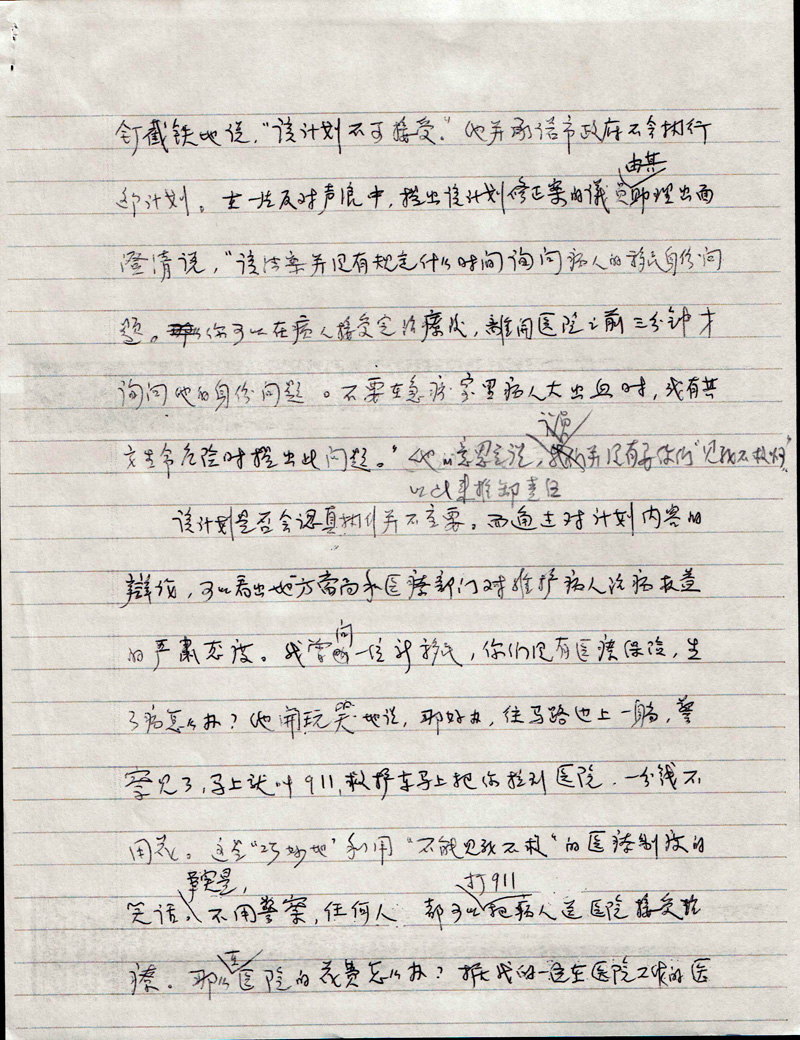 钉截铁地说，"该计划不可接受。"他并承诺市政府不会执行
此计划。在一片反对声浪中，提出该计划修正案的议员由其助理出面
澄清说，"该法案并没有规定什么时间询问病人的移民身份问
题。你可以在病人接受完治疗后，離開医院之前三分钟才
询问他的身份问题。不要在急疹室里病人大出血时，或有其
它生命危险时提出此问题。"他的意思是说，议员并没有要你们"见死不救"
以此来推卸责任
该计划是否会认真执行并不重要。而通过对计划内容的
辩论，可以看出地方当局和医療部门对维护病人治病权益
的严肃态度。我曾问一位新移民，你们没有医療保险，生
了病怎么办？他開玩笑地说，那好办，往马路边上一躺，警
察见了，马上就叫911，救护车马上把你拉到医院，一分钱不
用花。这是"巧妙地"利用"不能见死不救"的医療制度的
笑话。事实是，不用警察，任何人都可以打911把病人送医院接受治
療。那么在医院的花费怎么办？据我的一位在医院工作的医